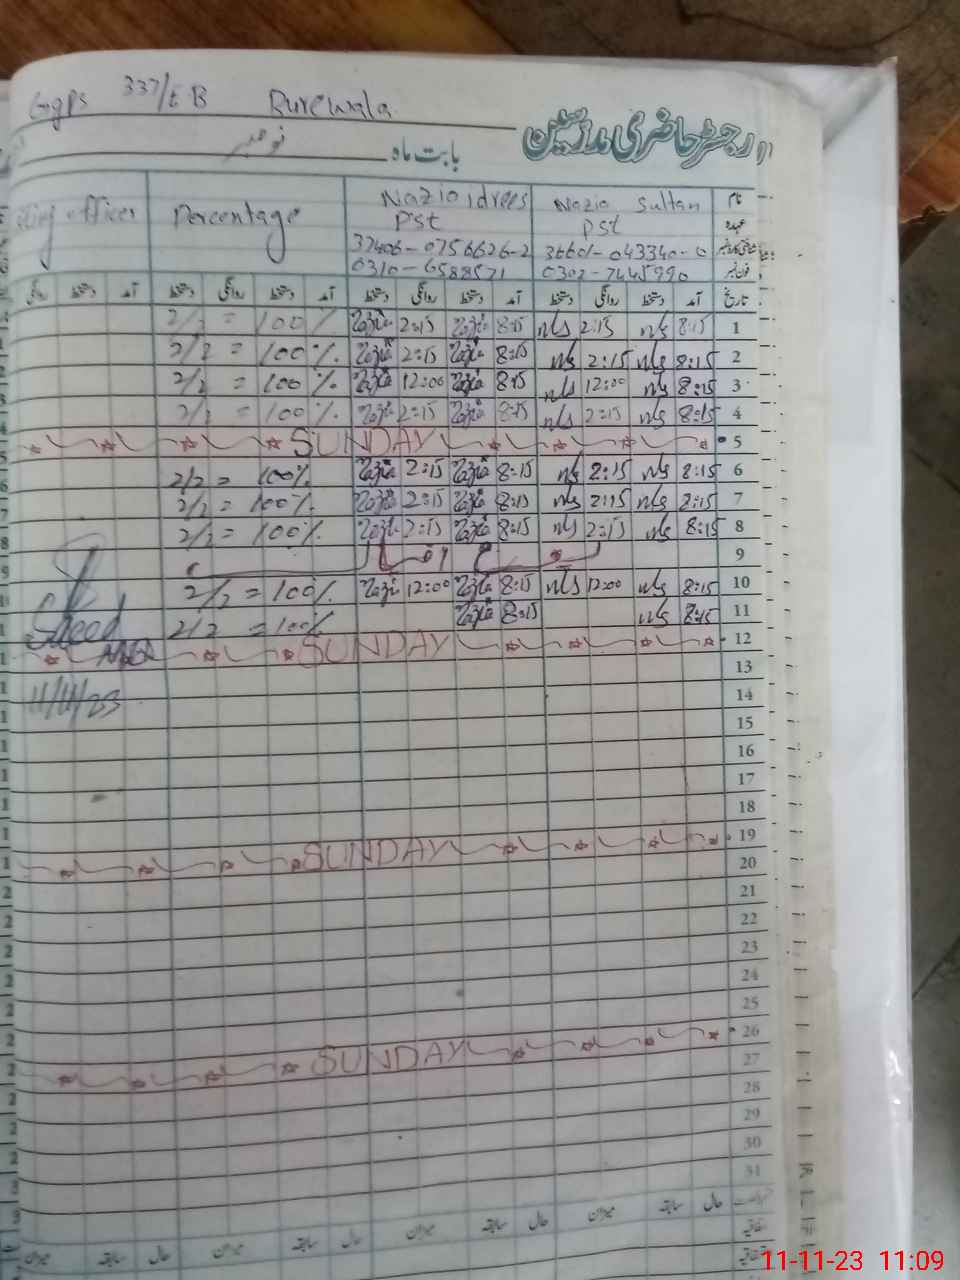 GGPS 337/E-B Burewala
رجسٹر حاضری مدرسین
بابت ماہ نومبر
officer Percentage Nazia idrees Nazia Sultan نام
PST PST عہدہ
37406-0756626-2
0310-6588571 0302-7445990 فون نمبر
روانگی دستخط آمد دستخط روانگی دستخط آمد دستخط روانگی دستخط آمد دستخط روانگی دستخط آمد تاریخ
2/2 = 100% Nazia 2:15 Nazia 8:15 nls 2:15 nls 8:15 1
2/2 = 100% Nazia 2:15 Nazia 8:15 nls 2:15 nls 8:15 2
2/2 = 100% Nazia 12:00 Nazia 8:15 nls 12:00 nls 8:15 3
2/2 = 100% Nazia 2:15 Nazia 8:15 nls 2:15 nls 8:15 4
SUNDAY 5
2/2 = 100% Nazia 2:15 Nazia 8:15 nls 2:15 nls 8:15 6
2/2 = 100% Nazia 2:15 Nazia 8:15 nls 2:15 nls 8:15 7
2/2 = 100% Nazia 2:15 Nazia 8:15 nls 2:15 nls 8:15 8
9
2/2 = 100% Nazia 12:00 Nazia 8:15 nls 12:00 nls 8:15 10
Saeed 2/2 = 100% Nazia 8:15 nls 8:15 11
SUNDAY 12
13
11/11/23 14
15
16
17
18
SUNDAY 19
20
21
22
23
24
25
SUNDAY 26
27
28
29
30
31
میزان سابقہ حال میزان سابقہ حال میزان سابقہ حال میزان سابقہ حال
11-11-23 11:09